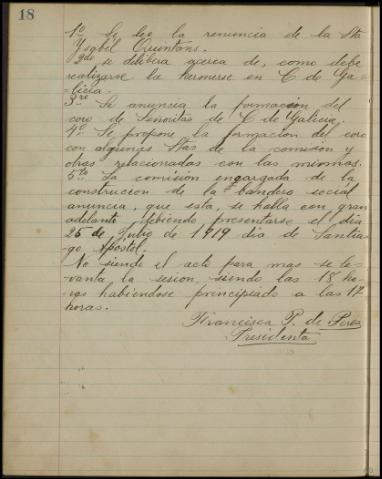 18
1º Se lee la renuncia de la Sta
Ysabel Quintans.
2do se delibera acerca de, como debe
realizarse la kermesse en C de Ga-
licia.
3re Se anuncia la formacion del
coro de Señoritas de C de Galicia.
4º Se propone la formacion del coro
con algunas Stas de la comision y
otras relacionadas con las mismas.
5to La comisión encargada de la
construcion de la bandera social
anuncia, que esta, se halla con gran
adelanto debiendo presentarse el dia
25 de Julio de 1919 dia de Santia-
go Apóstol.
No siendo el acto para mas se le-
vanta la sesion, siendo las 18 ho-
ras habiendose principiado a las 17
horas.
Francisca P. de Perez
Presidenta